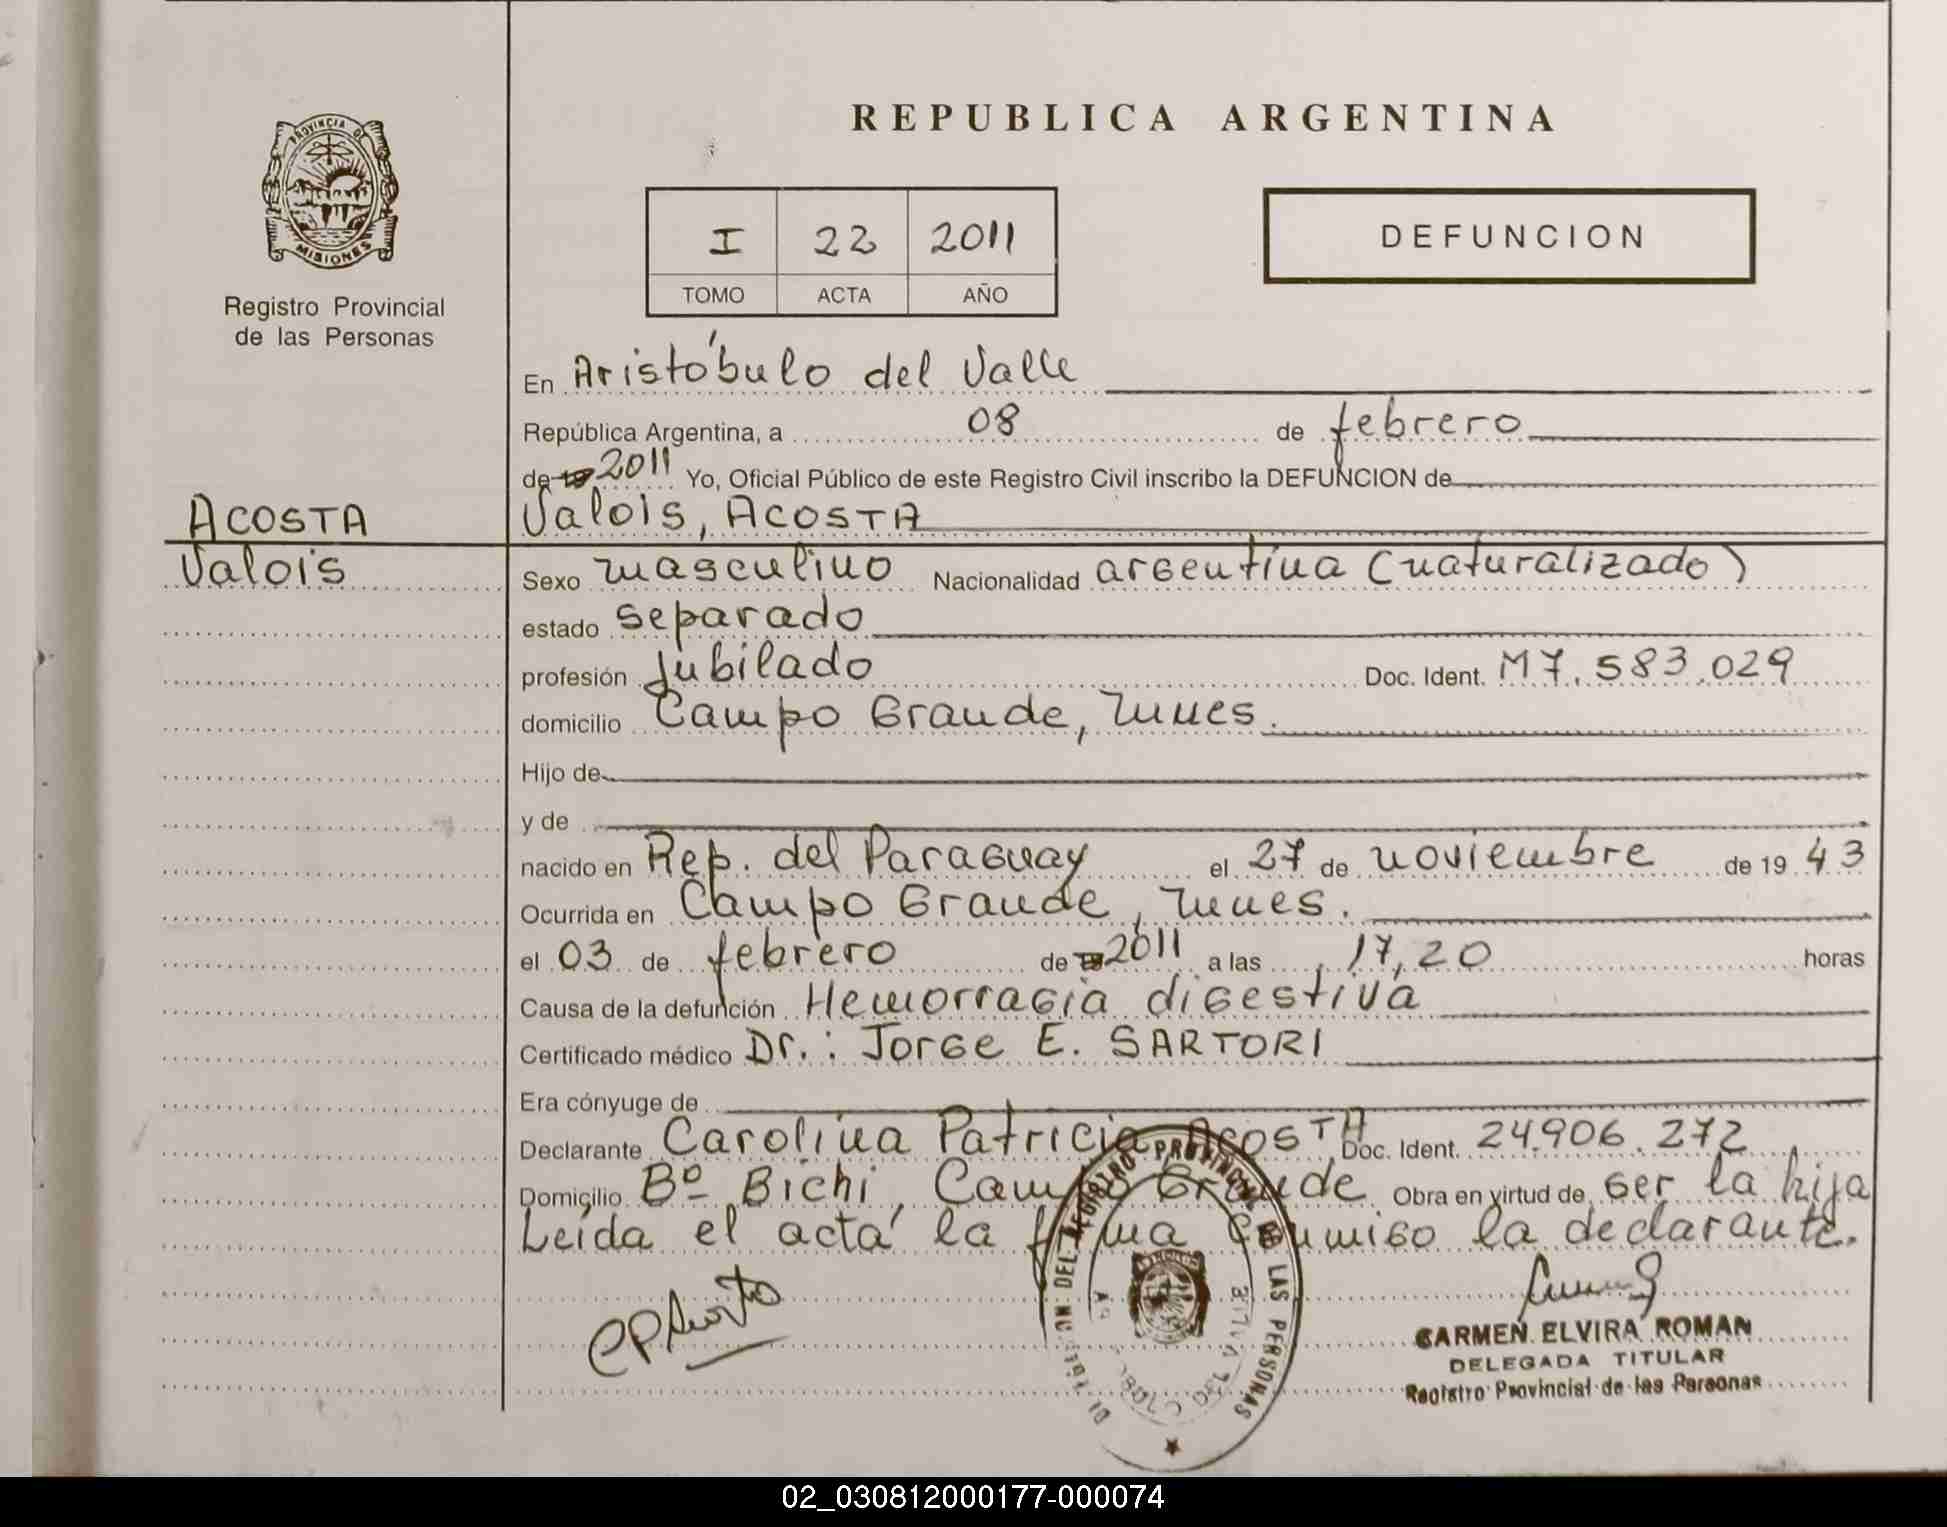 PROVINCIA DE
MISIONES
Registro Provincial
de las Personas
ACOSTA
Valois
REPUBLICA ARGENTINA
I 22 2011
TOMO ACTA AÑO
DEFUNCION
En Aristóbulo del Valle
República Argentina, a 08 de febrero
de 19 2011 Yo, Oficial Público de este Registro Civil inscribo la DEFUNCION de
Valois, ACOSTA
Sexo masculino Nacionalidad argentina (naturalizado)
estado separado
profesión Jubilado Doc. Ident. M7.583.029
domicilio Campo Grande, Mnes.
Hijo de
y de
nacido en Rep. del Paraguay el 27 de noviembre de 19 43
Ocurrida en Campo Grande, Mnes.
el 03 de febrero de 19 2011 a las 17,20 horas
Causa de la defunción Hemorragia digestiva
Certificado médico Dr.: Jorge E. SARTORI
Era cónyuge de
Declarante Carolina Patricia ACOSTA Doc. Ident. 24.906.272
Domicilio Bº Bichi, Campo Grande Obra en virtud de ser la hija
Leída el acta la firma conmigo la declarante.
CPAcosta
CARMEN ELVIRA ROMAN
DELEGADA TITULAR
Registro Provincial de las Personas
DEL REGISTRO PROVINCIAL DE LAS PERSONAS
02_030812000177-000074